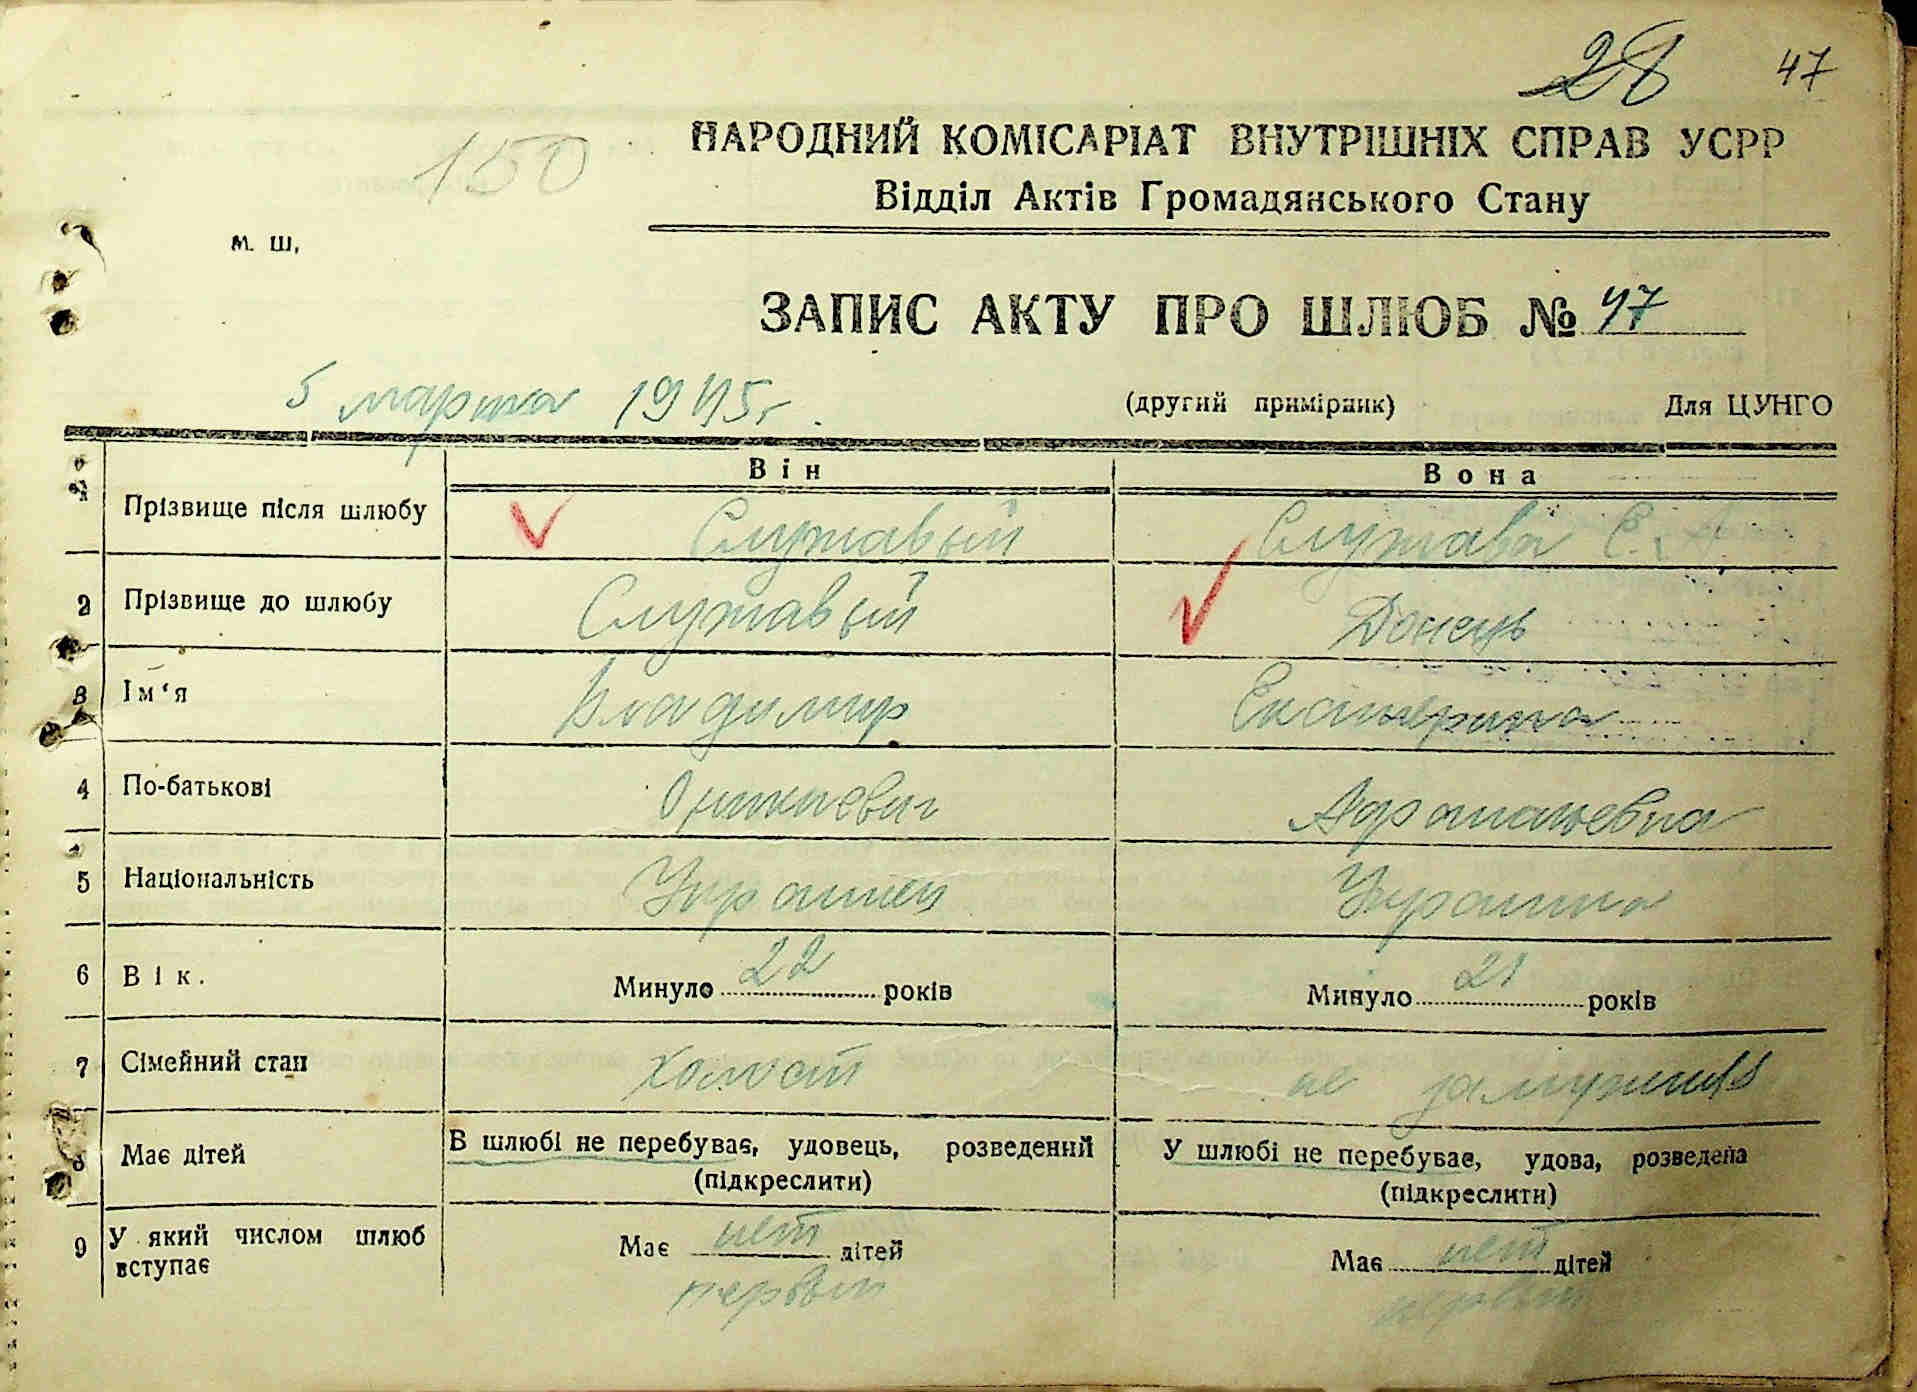 28 47
150
НАРОДНИЙ КОМІСАРІАТ ВНУТРІШНІХ СПРАВ УСРР
Відділ Актів Громадянського Стану
М. Ш,
ЗАПИС АКТУ ПРО ШЛЮБ № 47
5 марта 1945 г.
(другий примірник) Для ЦУНГО
Він Вона
1 Прізвище після шлюбу Служавый Служава Е. А
2 Прізвище до шлюбу Служавый Донець
3 Ім'я Владимир Екатерина
4 По-батькові Адрапатьевна
5 Національність Украинец Украинка
6 Вік. Минуло 22 років Минуло 21 років
7 Сімейний стан холост не замужняя
8 Має дітей В шлюбі не перебуває, удовець, розведений У шлюбі не перебуває, удова, розведена
(підкреслити) (підкреслити)
9 У який числом шлюб вступає Має нет дітей Має нет дітей
первый первый